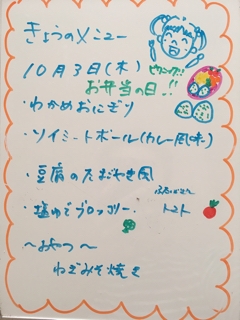 きょうのメニュー
10月3日(木) ピクニック!!
お弁当の日!!
・わかめおにぎり
・ソイミートボール(カレー風味)
・豆腐のたまごやき風
・塩ゆでブロッコリー トマト
～おやつ～
ねぎみそ焼き